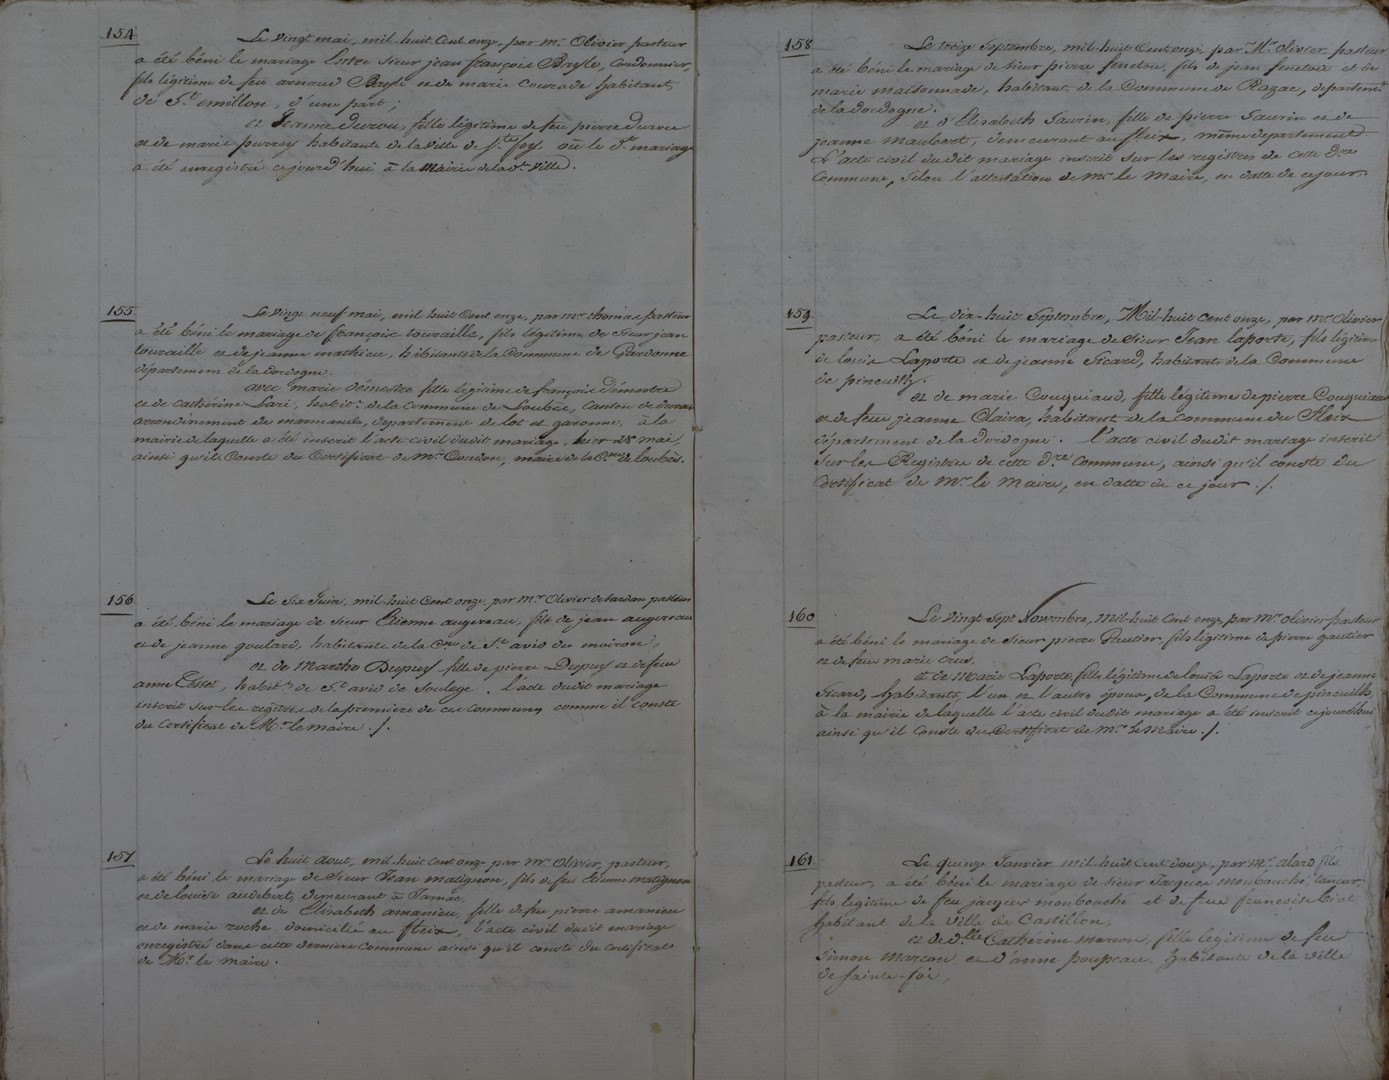 154
Le vingt mai, mil huit cent onze, par mr. Olivier pasteur
a été béni le mariage Entre Sieur jean françois Bayle, Cordonnier,
fils légitime de feu arnaud Bayle et de marie Courade habitant,
de St. emillon, d'une part;
et Jeanne Durou, fille légitime de feu pierre durou
et de marie habitante de la ville de Ste. foy. où le dt. mariage
a été enregistré cejourd'hui à la Mairie de la de. Ville.
155
Le vingt neuf mai, mil huit Cent onze, par mr. thomas pasteur
a été béni le mariage de françois touraille, fils légitime de Sieur jean
touraille et de jeanne mathieu, habitants de la Commune de
département de la dordogne.
avec marie démestre fille légitime de françois démestre
et de cathérine Lari, habits. de la commune de Loubès, Canton de duras
arrondinement de marmande, département de lot et garonne, à la
mairie de laquelle a été inscrit l'acte civil dudit mariage, hier 28 mai,
ainsi qu'il Conste du Certificat de Mr. maire de la Cne. de loubès.
156
Le Six Juin, mil-huit Cent onze, par Mr. Olivier de sardan pasteur
a été béni le mariage de Sieur Etienne augereau, fils de jean augereau
et de jeanne goulard, habitants de la Cne de St. avis du moiron,
et de Marthe Dupuy fille de pierre Dupuy et de feue
anne habits. de St. avis de Soulege. l'acte dudit mariage
inscrit sur les régitres de la première de ces Communes comme il conste
du Certificat de Mr. le maire ./.
157
Le huit aout, mil-huit cent onze par Mr. Olivier, pasteur,
a été béni le mariage de Sieur Jean matignon, fils de feu Etienne matignon
et de louise audebert, demeurant à Jarnac.
et de Elisabeth amanieu, fille de feu pierre amanieu
et de marie roche domiciliée au fleix, l'acte civil dudit mariage
enregistré dans cette dernière Commune ainsi qu'il conste du Certificat
de Mr. le maire.
158
Le treize Septembre, mil-huit Cent onze, par Mr. Olivier pasteur,
a été béni le mariage de sieur pierre fenelou, fils de jean fenelou et de
marie maisonnade, habitant de la Commune de Razac, départemt.
de la dordogne.
et d'Elisabeth Saurin, fille de pierre Saurin et de
jeanne Maubert, demeurant au fleix, même département
L'acte civil dudit mariage inscrit sur les registres de cette dre
Commune, selon l'attestation de Mr le Maire, en datte de ce jour.
159
Le dix-huit Septembre, Mil-huit Cent onze, par mr Olivier
pasteur, a été béni le mariage de Sieur Jean laporte, fils légitime
de louis Laporte et de jeanne Sicard, habitants de la Commune
de pineuilh.
et de marie Couguiaud, fille légitime de pierre Couguiau
et de feue jeanne Claira, habitant de la Commune du Fleix
département de la Dordogne. l'acte civil dudit mariage inscrit
sur les Registres de cette dre. commune, ainsi qu'il conste du
Certificat de Mr. le Maire, en datte de ce jour ./.
160
Le Vingt-Sept Novembre, Mil-huit Cent onze par Mr Olivier pasteur
a été béni le mariage de Sieur pierre Gautier fils légitime de pierre gautier
et de feu marie Crus.
et de Marie Laporte, fille légitime de louis Laporte et de jeanne
Sicard, habitants, l'un et l'autre époux, de la Commune de pineuilh,
à la mairie de laquelle l'acte civil dudit mariage a été inscrit cejourd'hui
ainsi qu'il conste du Certificat de Mr. le Maire ./.
161
Le quinze Janvier mil-huit Cent douze, par Mr. alard fils
pasteur, a été béni le mariage de sieur Jacques monbouché, tanneur,
fils légitime de feu jacques monbouché et de feue françoise
habitant de la Ville de Castillon,
et de dlle. Cathérine Marcou, fille légitime de feu
Simon Marcou et d'anne poupeau. habitante de la Ville
de Sainte-foi,